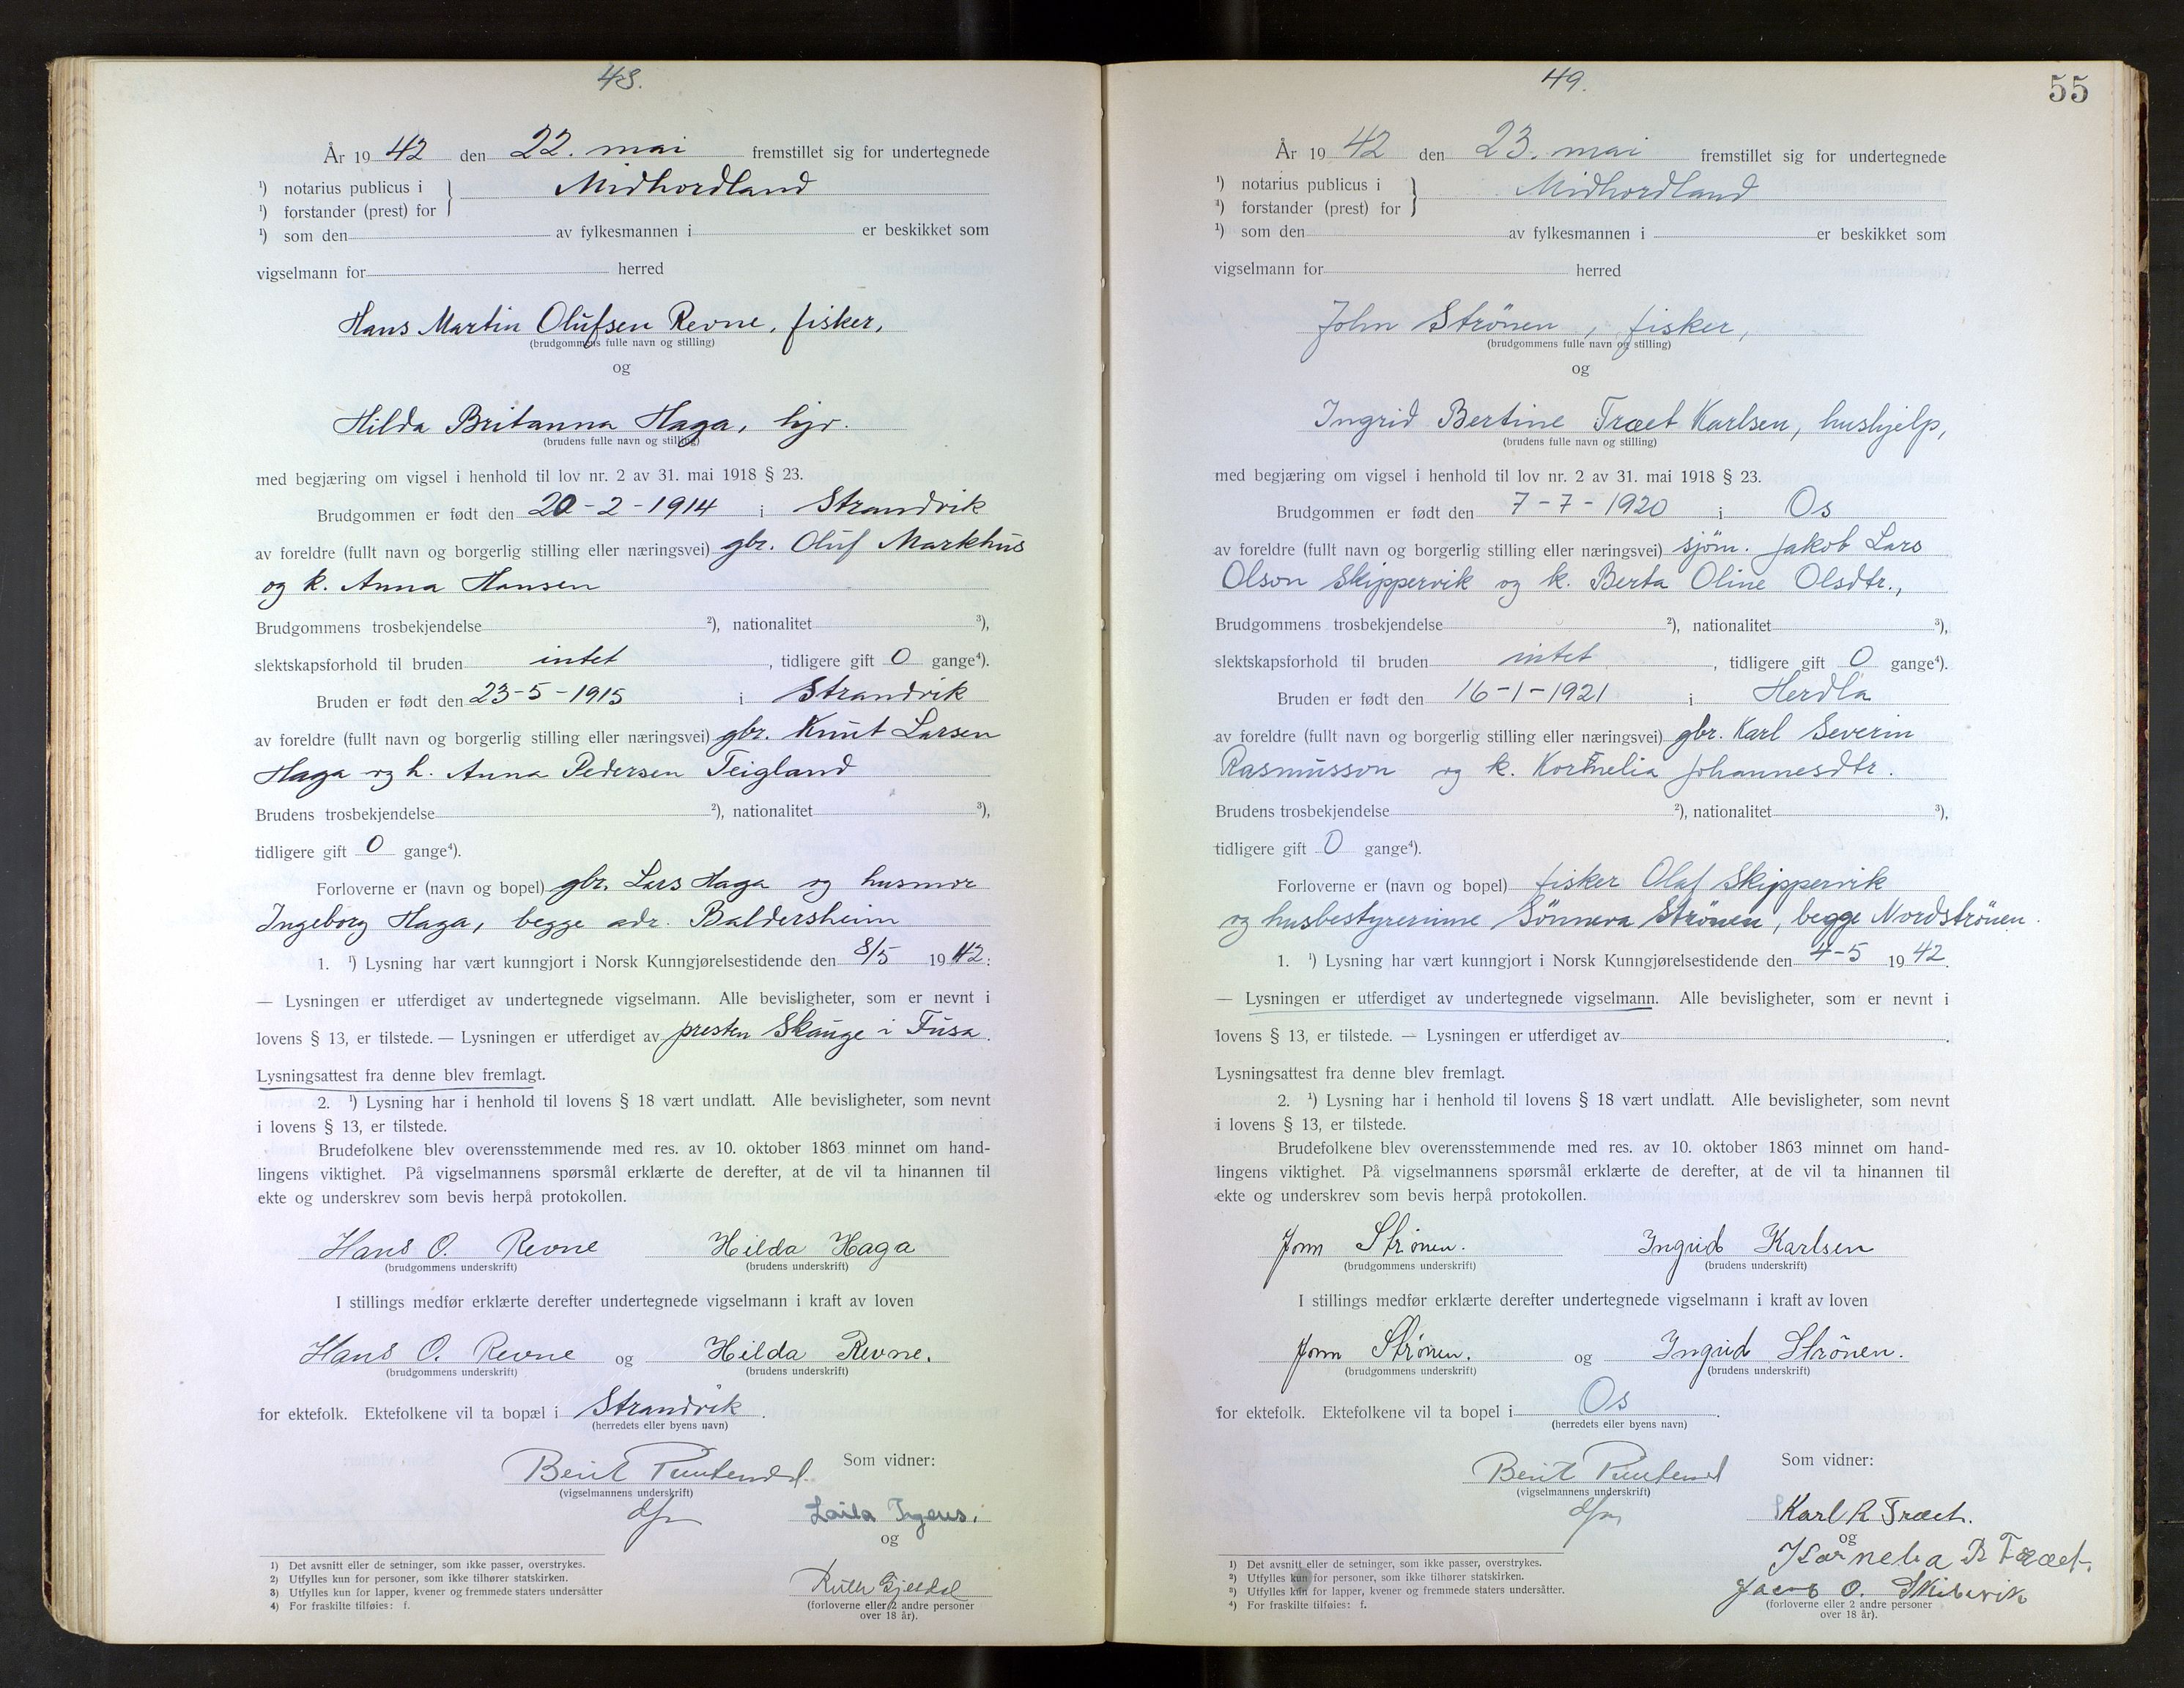 48.
År 1942 den 22. mai fremstillet sig for undertegnede
¹) notarius publicus i
Midhordland
¹) forstander (prest) for
¹) som den av fylkesmannen i er beskikket som
vigselmann for herred
Hans Martin Olufsen Revne, fisker,
(brudgommens fulle navn og stilling)
og
Hilda Britanna Haga, hjv.
(brudens fulle navn og stilling)
med begjæring om vigsel i henhold til lov nr. 2 av 31. mai 1918 § 23.
Brudgommen er født den 20-2-1914 i Strandvik
av foreldre (fullt navn og borgerlig stilling eller næringsvei) gbr. Oluf Markhus
og k. Anna Hansen
Brudgommens trosbekjendelse ²), nationalitet ³),
slektskapsforhold til bruden intet, tidligere gift 0 gange⁴).
Bruden er født den 23-5-1915 i Strandvik
av foreldre (fullt navn og borgerlig stilling eller næringsvei) gbr. Knut Larsen
Haga og h. Anna Pedersen Teigland
Brudens trosbekjendelse ²), nationalitet ³),
tidligere gift 0 gange⁴).
Forloverne er (navn og bopel) gbr. Lars Haga og husmor
Ingeborg Haga, begge adr. Baldersheim
1. ¹) Lysning har vært kunngjort i Norsk Kunngjørelsestidende den 8/5 1942:
— Lysningen er utferdiget av undertegnede vigselmann. Alle bevisligheter, som er nevnt i
lovens § 13, er tilstede. — Lysningen er utferdiget av presten Skauge i Fusa.
Lysningsattest fra denne blev fremlagt.
2. ¹) Lysning har i henhold til lovens § 18 vært undlatt. Alle bevisligheter, som nevnt
i lovens § 13, er tilstede.
Brudefolkene blev overensstemmende med res. av 10. oktober 1863 minnet om hand-
lingens viktighet. På vigselmannens spørsmål erklærte de derefter, at de vil ta hinannen til
ekte og underskrev som bevis herpå protokollen.
Hans O. Revne Hilda Haga
(brudgommens underskrift) (brudens underskrift)
I stillings medfør erklærte derefter undertegnede vigselmann i kraft av loven
Hans O. Revne og Hilda Revne.
(brudgommens underskrift) (brudens underskrift)
for ektefolk. Ektefolkene vil ta bopæl i Strandvik.
(herredets eller byens navn)
Berit
Som vidner:
(vigselmannens underskrift)
Laila
og
Ruth Gjesdal
(forloverne eller 2 andre personer
over 18 år).
1) Det avsnitt eller de setninger, som ikke passer, overstrykes.
2) Utfylles kun for personer, som ikke tilhører statskirken.
3) Utfylles kun for lapper, kvener og fremmede staters undersåtter
4) For fraskilte tilføies: f.
49.
55
År 1942 den 23. mai fremstillet sig for undertegnede
¹) notarius publicus i
Midhordland
¹) forstander (prest) for
¹) som den av fylkesmannen i er beskikket som
vigselmann for herred
John Strönen, fisker,
(brudgommens fulle navn og stilling)
og
Ingrid Bertine Træet Karlsen, hushjelp,
(brudens fulle navn og stilling)
med begjæring om vigsel i henhold til lov nr. 2 av 31. mai 1918 § 23.
Brudgommen er født den 7-7-1920 i Os
av foreldre (fullt navn og borgerlig stilling eller næringsvei) sjöm. Jakob Lars
Olson Skippervik og k. Berta Oline Olsdtr.,
Brudgommens trosbekjendelse ²), nationalitet ³),
slektskapsforhold til bruden intet, tidligere gift 0 gange⁴).
Bruden er født den 16-1-1921 i Herdla
av foreldre (fullt navn og borgerlig stilling eller næringsvei) gbr. Karl Severin
Rasmusson og k. Kornelia Johannesdtr.
Brudens trosbekjendelse ²), nationalitet ³),
tidligere gift 0 gange⁴).
Forloverne er (navn og bopel) fisker Olaf Skippervik
og husbestyrerinne Sönneva Strönen, begge Nordströnen.
1. ¹) Lysning har vært kunngjort i Norsk Kunngjørelsestidende den 4-5 1942.
— Lysningen er utferdiget av undertegnede vigselmann. Alle bevisligheter, som er nevnt i
lovens § 13, er tilstede. — Lysningen er utferdiget av .
Lysningsattest fra denne blev fremlagt.
2. ¹) Lysning har i henhold til lovens § 18 vært undlatt. Alle bevisligheter, som nevnt
i lovens § 13, er tilstede.
Brudefolkene blev overensstemmende med res. av 10. oktober 1863 minnet om hand-
lingens viktighet. På vigselmannens spørsmål erklærte de derefter, at de vil ta hinannen til
ekte og underskrev som bevis herpå protokollen.
John Strönen. Ingrid Karlsen
(brudgommens underskrift) (brudens underskrift)
I stillings medfør erklærte derefter undertegnede vigselmann i kraft av loven
John Strönen. og Ingrid Strönen.
(brudgommens underskrift) (brudens underskrift)
for ektefolk. Ektefolkene vil ta bopel i Os.
(herredets eller byens navn)
Berit
Som vidner:
(vigselmannens underskrift)
Karl R Træet.
og
Kornelia R Træet.
Jacob O. Skibevik
(forloverne eller 2 andre personer
over 18 år).
1) Det avsnitt eller de setninger, som ikke passer, overstrykes.
2) Utfylles kun for personer, som ikke tilhører statskirken.
3) Utfylles kun for lapper, kvener og fremmede staters undersåtter.
4) For fraskilte tilføies: f.